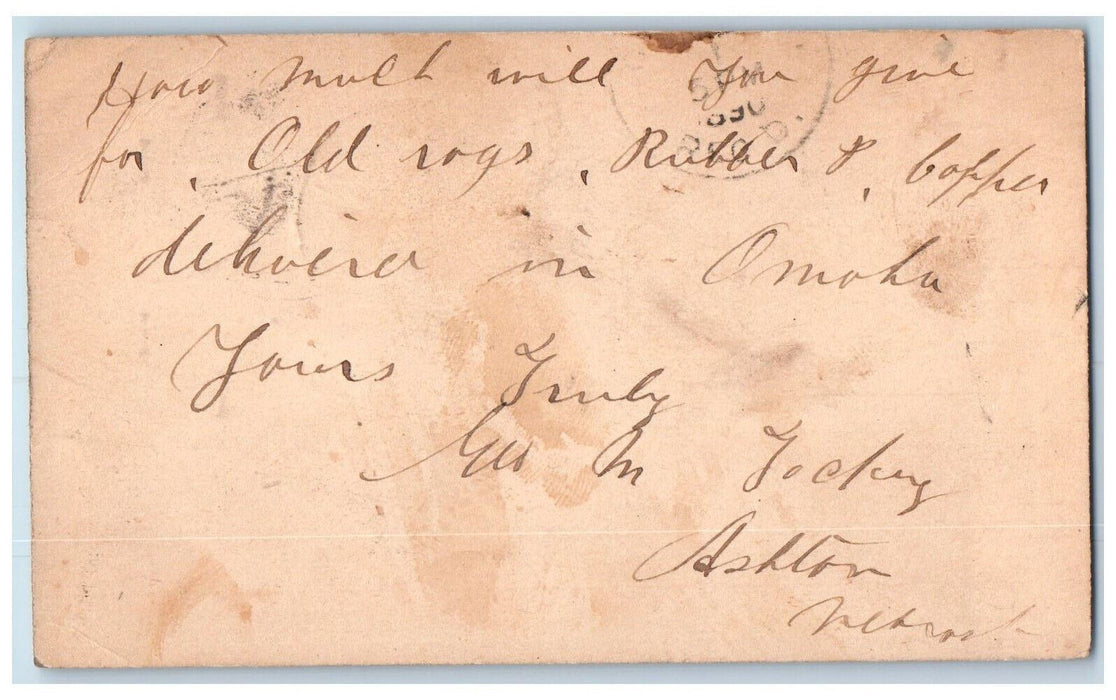 How much will You give
for, Old rags, Rubber &, Copper
delivered in Omaha
Yours Truly
Geo M
Ashton